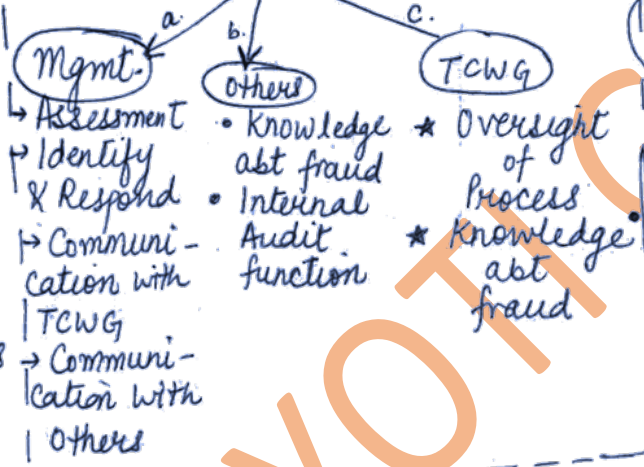 a.
b.
c.
Mgmt.
→ Assessment
→ Identify
& Respond
→ Communi-
cation with
TCWG
→ Communi-
cation with
Others
Others
• Knowledge
abt fraud
• Internal
Audit
function
TCWG
★ Oversight
of
Process
★ Knowledge
abt
fraud